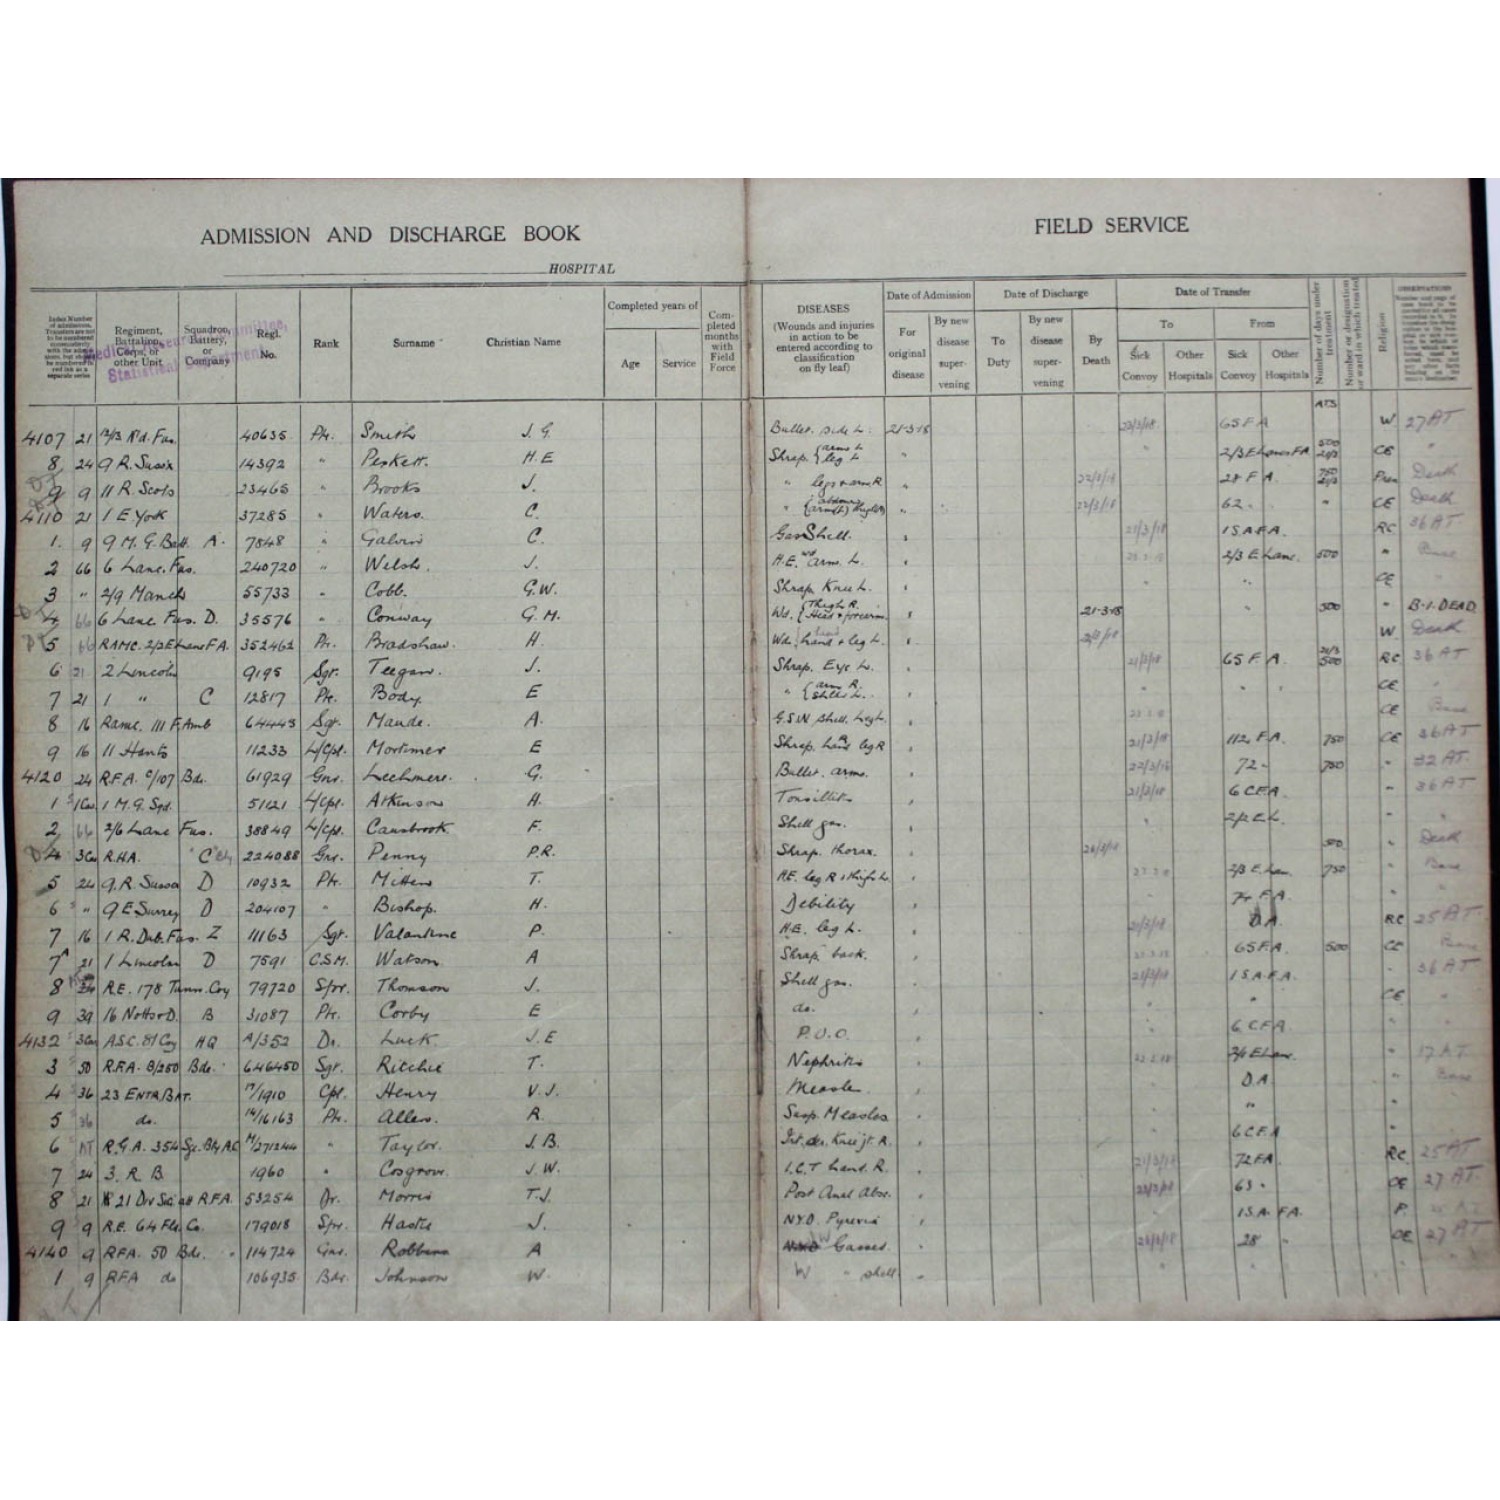 ADMISSION AND DISCHARGE BOOK
HOSPITAL
FIELD SERVICE
Index Number of admissions. Transfers are not to be numbered consecutively
Regiment, Battalion, Corps, or other Unit
Squadron, Battery, or Company
Regl. No.
Rank
Surname
Christian Name
Completed years of
Age
Service
Completed months with Field Force
DISEASES (Wounds and injuries in action to be entered according to classification on fly leaf)
Date of Admission
For original disease
By new disease supervening
Date of Discharge
To Duty
By new disease supervening
By Death
Date of Transfer
To
Sick Convoy
Other Hospitals
From
Sick Convoy
Other Hospitals
Number of days under treatment
Number or designation of ward in which treated
Religion
OBSERVATIONS
ATS
4107 21 40635 Pte. Smith J. G. Bullet. side L. 21-3-18 22/3/18 65 F A W 27 AT
8 24 9 R. Sussx 14392 " Peskett. H. E Shrap. { arm L leg L " 2/3 E Lancs F.A. 500 CE "
9 9 11 R. Scots 23465 " Brooks J. " legs & arm R. " 22/3/18 28 F A. 750 Pres Death
4110 21 1 E. York 37285 " Waters. C. " 22/3/18 62 " CE Death
1. 9 9 M. G. Batt. A. 7548 " Galvin C. Gas Shell. " 21/3/18 1 S.A.F.A. RC 36 AT
2 66 6 Lanc. Fus. 240720 " Welsh. J. H.E. arm. L. " 2/3 E. Lanc. 500 " Base
3 " 2/9 Manch 55733 " Cobb. G. W. Shrap. Knee L. " " CE
4 66 6 Lanc. Fus. D. 35576 " Conway G. M. Wd. { Thigh R. Head & forearm " 21-3-18 " 500 " B.I. DEAD
5 66 RAMC. 2/2 E Lanc F A. 352462 Pte. Bradshaw. H. Wds. hand & leg L. " W. Death
6 21 2 Lincoln 9195 Sgt. Teegan. J. Shrap. Eye L. " 21/3/18 65 F. A. 500 RC 36 AT
7 21 1 " C 12817 Pte. Body. E " { arm R. " " " CE "
8 16 Ramc. 111 F. Amb 64443 Sgt. Maude. A. G.S.W. Shell. leg L. " CE Base
9 16 11 Hants 11233 L/Cpl. Mortimer E Shrap. hand leg R " 21/3/18 112 F. A. 750 CE 36 AT
4120 24 R.F.A. C/107 Bde. 61929 Gnr. Lechmere. G. Bullet. arm. " 22/3/18 72 " 750 " 32 AT.
1 1 Cav 1 M. G. Sqd. 51121 L/Cpl. Atkinson H. Tonsillitis " 21/3/18 6 C F A. " 36 AT
2 66 2/6 Lanc Fus. 38849 L/Cpl. F. Shell gas. " " 2/2 E L. " "
4 3 Cav R.H.A. "C" Bty 224088 Gnr. Penny P. R. Shrap. thorax. " 500 " Death
5 24 9. R. Sussx D 10932 Pte. Mittens T. H.E. leg R & thigh L. " 2/3 E. Lan. 750 " Base
6 " 9 E Surrey D 204107 " Bishop. H. Debility 74 F A. " "
7 16 1 R. Dub. Fus. Z 11163 Sgt. Valantine P. H.E. leg L. " D A. RC 25 AT
7A 21 1 Lincoln D 7591 C.S.M. Watson A Shrap. back. " 65 F.A. 500 CE Base
8 R.E. 178 Tunn. Coy 79720 Spr. Thomson J. Shell gas. " 21/3/18 1 S.A.F.A. " 36 AT
9 39 16 Notts & D. B 31087 Pte. Corby E do. " " " CE "
4132 3 Cav A.S.C. 81 Coy HQ A/352 Dr. Luck. J. E P. U. O. " " 6 C F A. " "
3 50 R.F.A. B/250 Bde. 646450 Sgt. Ritchie T. Nephritis " " 17 AT
4 36 23 Entr Bat. 17/1910 Cpl. Henry V. J. Measles " " D A. " Base
5 36 do. 14/16163 Pte. Allen. R. Susp. Measles " " " "
6 AT R.G.A. 354 Sge. Bty A.C M/271244 " Taylor. J. B. Int. der. Knee jt. R. " " 6 C F A " "
7 24 3. R. B. 1960 " Cosgrove. J. W. I.C.T hand. R. " 21/3/18 72 F A. RC 25 AT
8 21 21 Div Sig att R.F.A. 53254 Dr. Morris T. J. Post Anal Absc. " 22/3/18 63 " CE 27 AT.
9 9 R.E. 64 Fld. Co. 179018 Spr. Hastie J. N.Y.D. Pyrexia " 1 S. A. F A. P.
4140 9 R.F.A. 50 Bde. " 114724 Gnr. Robbins A W Gassed. " 28 " CE 27 AT
1 9 R F A do 106935 Bdr. Johnson W. W " shell "